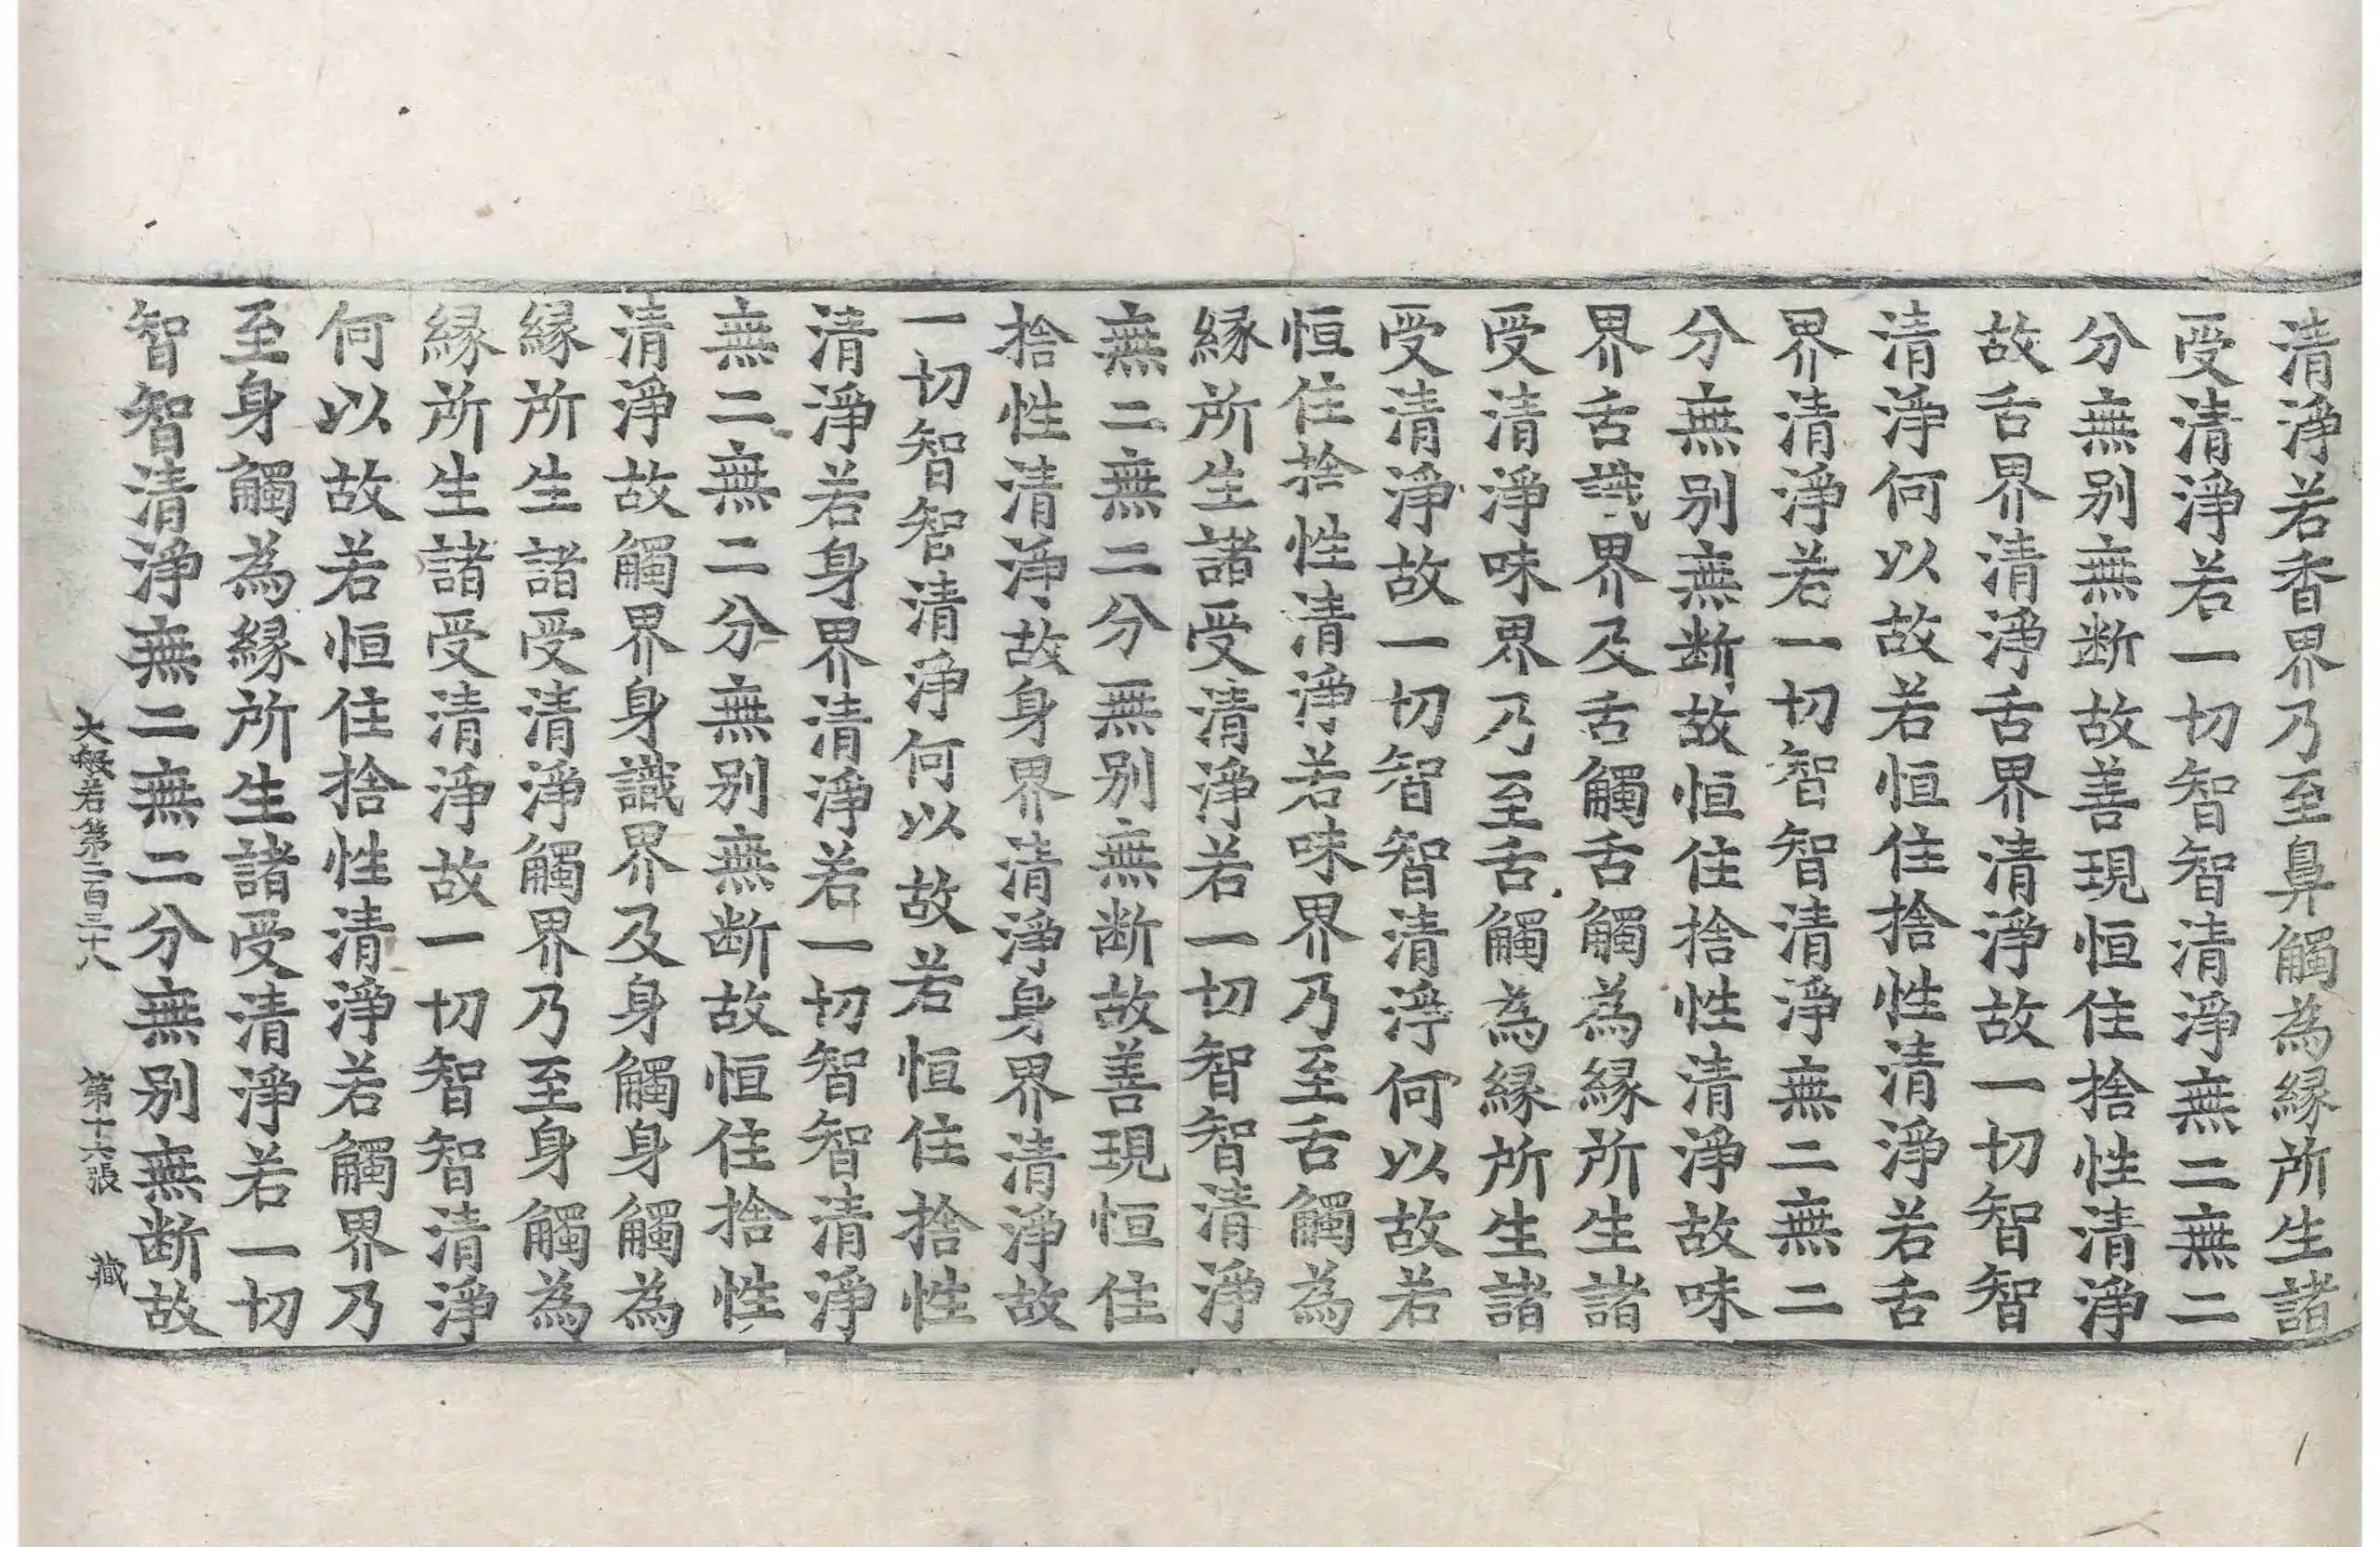 清淨若香界乃至鼻觸為緣所生諸
受清淨若一切智智清淨無二無二
分無別無断故善現恒住捨性清淨
故舌界清淨舌界清淨故一切智智
清淨何以故若恒住捨性清淨若舌
界清淨若一切智智清淨無二無二
分無別無断故恒住捨性清淨故味
界舌識界及舌觸舌觸為緣所生諸
受清淨味界乃至舌觸為緣所生諸
受清淨故一切智智清淨何以故若
恒住捨性清淨若味界乃至舌觸為
緣所生諸受清淨若一切智智清淨
無二無二分無別無断故善現恒住
捨性清淨故身界清淨身界清淨故
一切智智清淨何以故若恒住捨性
清淨若身界清淨若一切智智清淨
無二無二分無別無断故恒住捨性
清淨故觸界身識界及身觸身觸為
緣所生諸受清淨觸界乃至身觸為
緣所生諸受清淨故一切智智清淨
何以故若恒住捨性清淨若觸界乃
至身觸為緣所生諸受清淨若一切
智智清淨無二無二分無別無断故
大般若第二百三十八 第十六張 藏